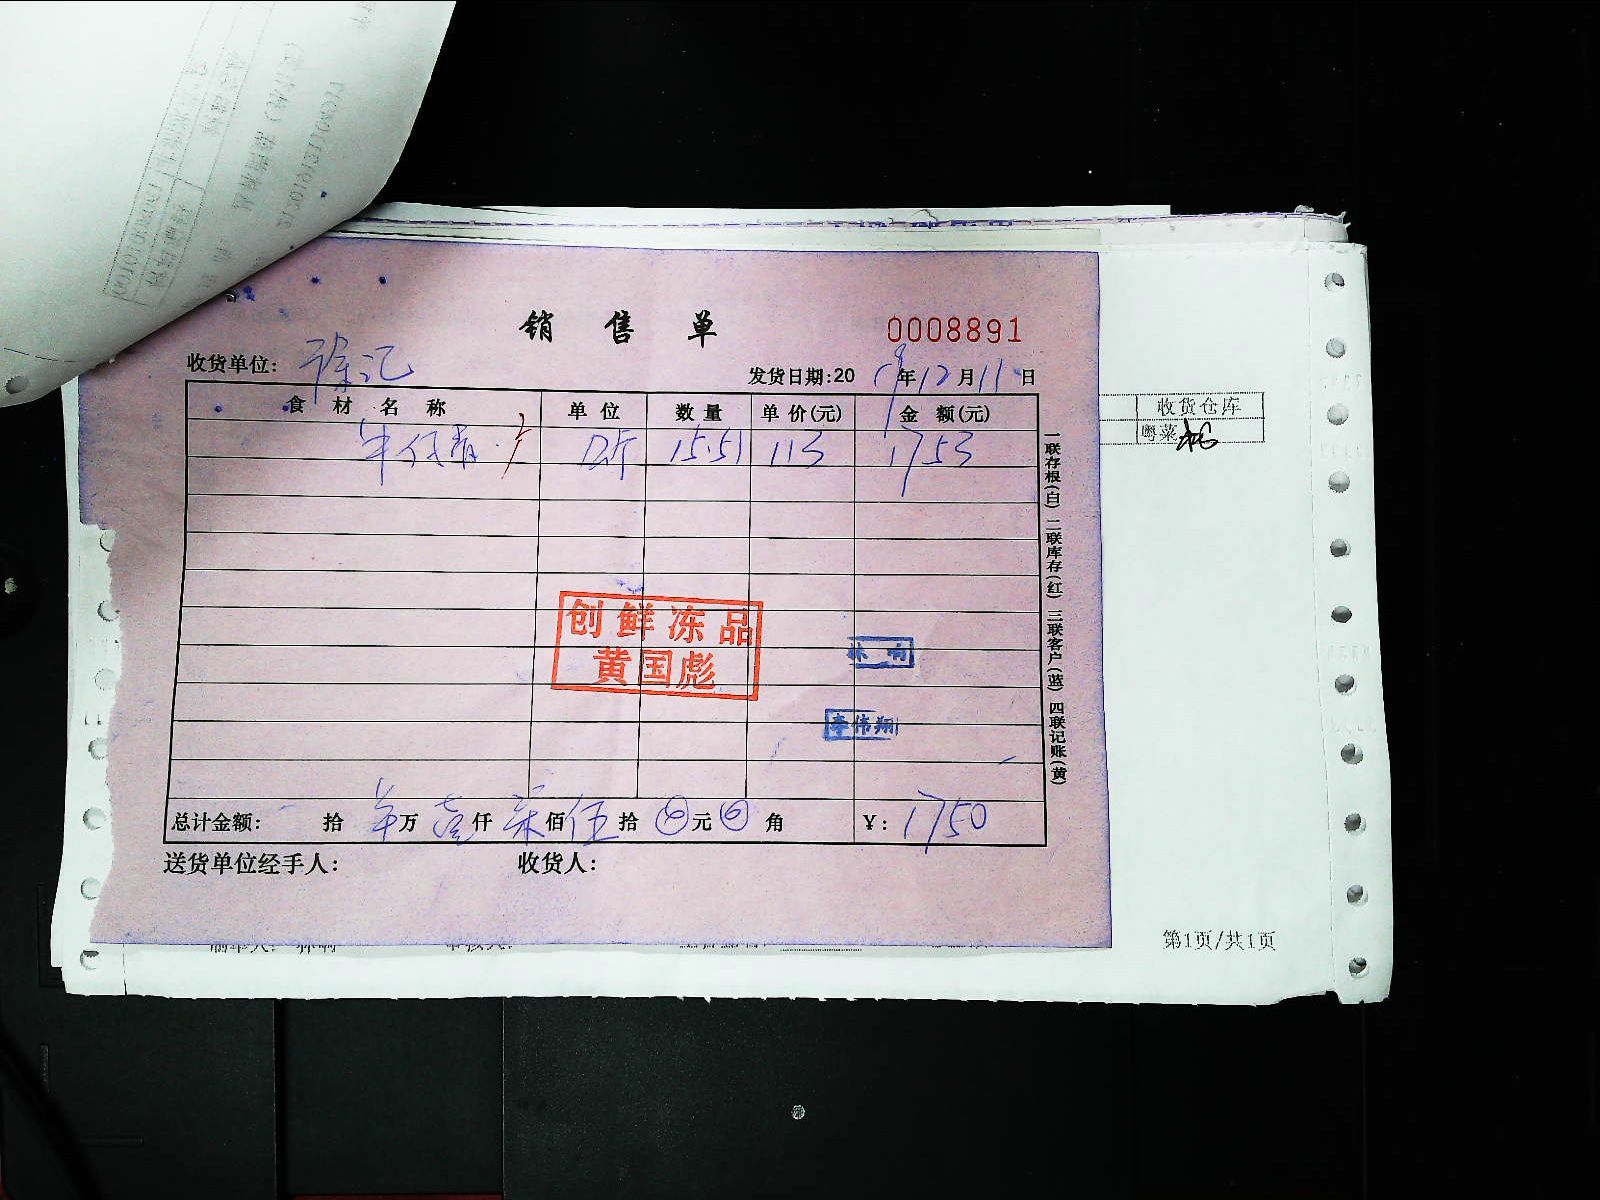 销售单
0008891
收货单位: 徐汇
发货日期:2019年12月11日
食材名称 单位 数量 单价(元) 金额(元)
斤 15.51 113 1753
创鲜冻品
黄国彪
李伟翔
总计金额: 拾 万 壹仟 柒佰 伍拾 元 角 ¥: 1750
送货单位经手人: 收货人:
一联存根(白) 二联库存(红) 三联客户(蓝) 四联记账(黄)
收货仓库
粤菜
第1页/共1页